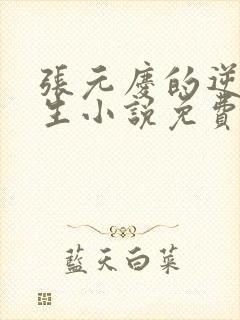 張元慶的逆
生小說免費
藍天白菜